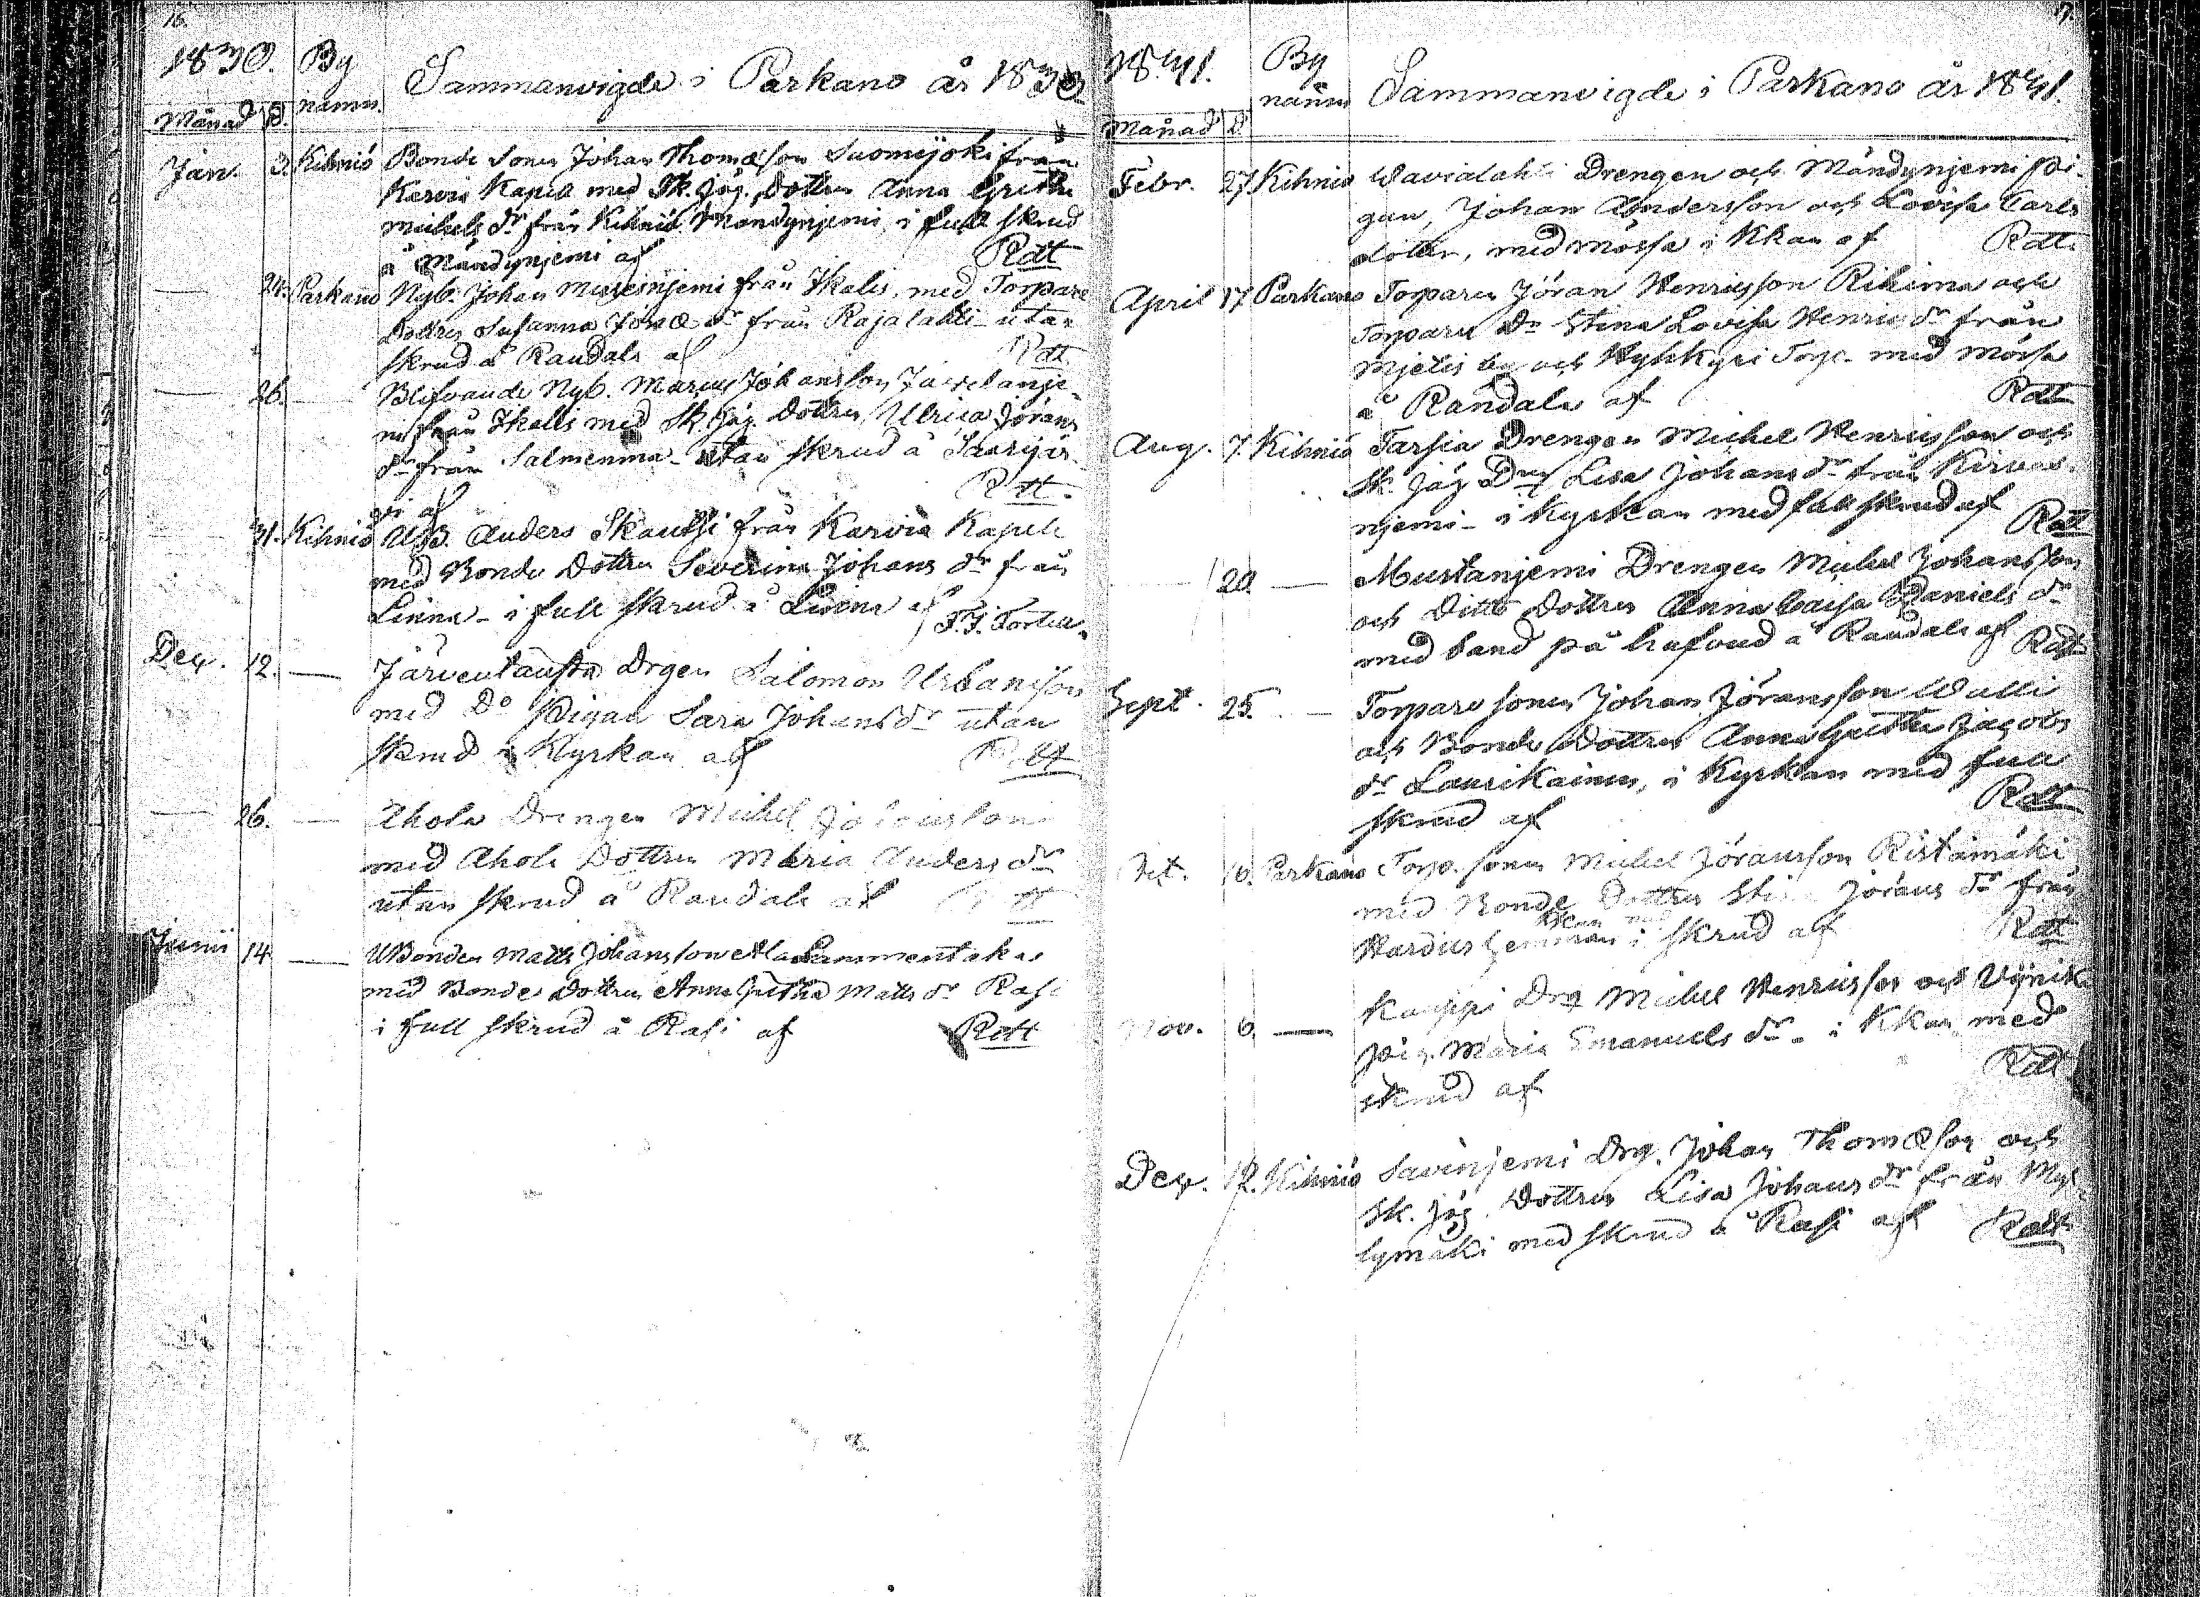 16.
1830. By
namn.
Månad D.
Sammanvigde i Parkano år 1830
Jan. 3. Kihniö Bonde Sonen Johan Thomæson Suomijoki från
Karvi Kapell med Sk. jäg. Dottren Anna Gretha
Michels dr från Kihniö Mändynjemi, i full skrud
å Mändynjemi af Rdtt
— 24. Parkano Nyb. Johan från Ikalis, med Torpare
Dottren Susanna Jonæ dr från Rajalahti utan
skrud å Raudala af Rdtt
— 26. — Blifvande Nyb. Johansson
från Ikalis med Sk. jäg. Dottren Ulrica Jörans
dr från Salmenma utan skrud å Saarijär
vi af Rdtt.
31. Kihniö Anders Skantsi från Karvia Kapell
med Bonde Dottren Severina Johans dr från
Linna - i full skrud å Linna af
Dec. 12. — Järventausta Drgen Salomon Urbansson
med Do Pigan Sara Johans dr utan
skrud i Kyrkan af Rdtt
— 26. — Ahola Drengen Michel
med Ahola Dottren Maria Anders dr
utan skrud å Raudala af Rdtt
Junii 14 — Bonden Matts Johansson Lammentakas
med Bonde Dottren Anna Gretha Matts dr Rasi
i full skrud å Rasi af Rdtt
17.
1841. By
namn
Månad D.
Sammanvigde i Parkano år 1841.
Febr. 27. Kihniö Wavialahti Drengen och Mändynjemi Pi-
gan, Johan Andersson och Lovisa Carls
dotter, med mössa i Kkan af Rdtt.
April 17 Parkano Torparen Jöran Henricsson Rihima och
Torpare Dr Stina Lovisa Henrics dr från
Mjetis by och Torp. med mössa
å Raudala af Rdtt
Aug. 7. Kihniö Tarsia Drengen Michel Henricsson och
Sk. jäg Dren Lisa Johans dr från Kirvas-
njemi - i Kyrkan med full skrud af Rdtt
— 20. — Mustanjemi Drengen Michel Johansson
och Ditto Dottren Anna Caisa Daniels dr
med band på hufvud å Raudala af Rdtt
Sept. 25. — Torpare sonen Johan Jöransson Walli
och Bonde Dottren Anna Gretha Jacobs
dr Laurikainen, i Kyrkan med full
skrud af Rdtt
Oct. Parkano Torp. sonen Michel Jöransson Ristamäki
med Bonde Dottren Jörans dr från
Kkan med
i skrud af Rdtt
Nov. 6. — Kauppi Drg Michel Henricsson och
Pig. Maria Emanuels dr - i Kkan med
skrud af Rdtt
Dec. 12. Kihniö Savinjemi Drg. Johan Thomæson och
Sk. jäg. Dottren Lisa Johans dr från Myl-
lymäki med skrud å Rasi af Rdtt